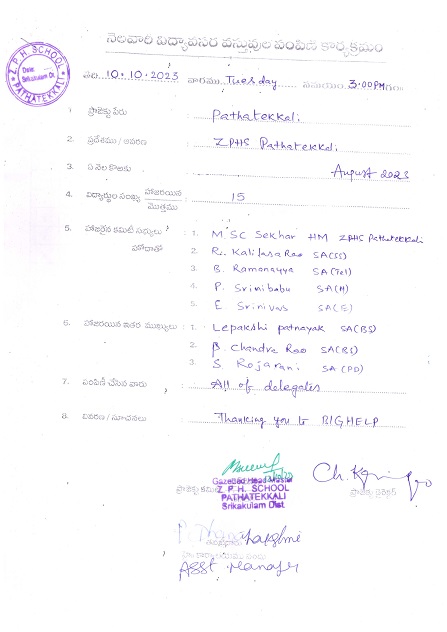 నెలవారి విద్యావసర వస్తువుల పంపిణి కార్యక్రమం
Z.P.H. SCHOOL
Date
Srikakulam Dt.
PATHATEKKALI
తేది 10.10.2023 వారము Tuesday సమయం 3:00PM గం
1. ప్రాజెక్టు పేరు : Pathatekkali
2. ప్రదేశము / ఆవరణ : ZPHS Pathatekkali
3. ఏ నెల కొఱకు : August 2023
4. విద్యార్థుల సంఖ్య హాజరయిన : 15
మొత్తము
5. హాజరైన కమిటీ సభ్యులు : 1. M. SC Sekhar HM ZPHS Pathatekkali
హోదాతో 2. R. Kalidasa Rao SA(SS)
3. B. Ramanayya SA(Tel)
4. P. Srinibabu SA(M)
5. E. Srinivas SA(E)
6. హాజరయిన ఇతర ముఖ్యులు : 1. Lepakshi patnayak SA(BS)
2. P. Chandra Rao SA(BS)
3. S Rojarani SA(PD)
7. పంపిణీ చేసిన వారు : All of delegates
8. వివరణ / సూచనలు : Thanking you to BIGHELP
Gazetted Head Master
ప్రాజెక్టు కమిటీ Z.P.H. SCHOOL ప్రాజెక్టు డైరెక్టర్
PATHATEKKALI
Srikakulam Dist.
Asst Manager